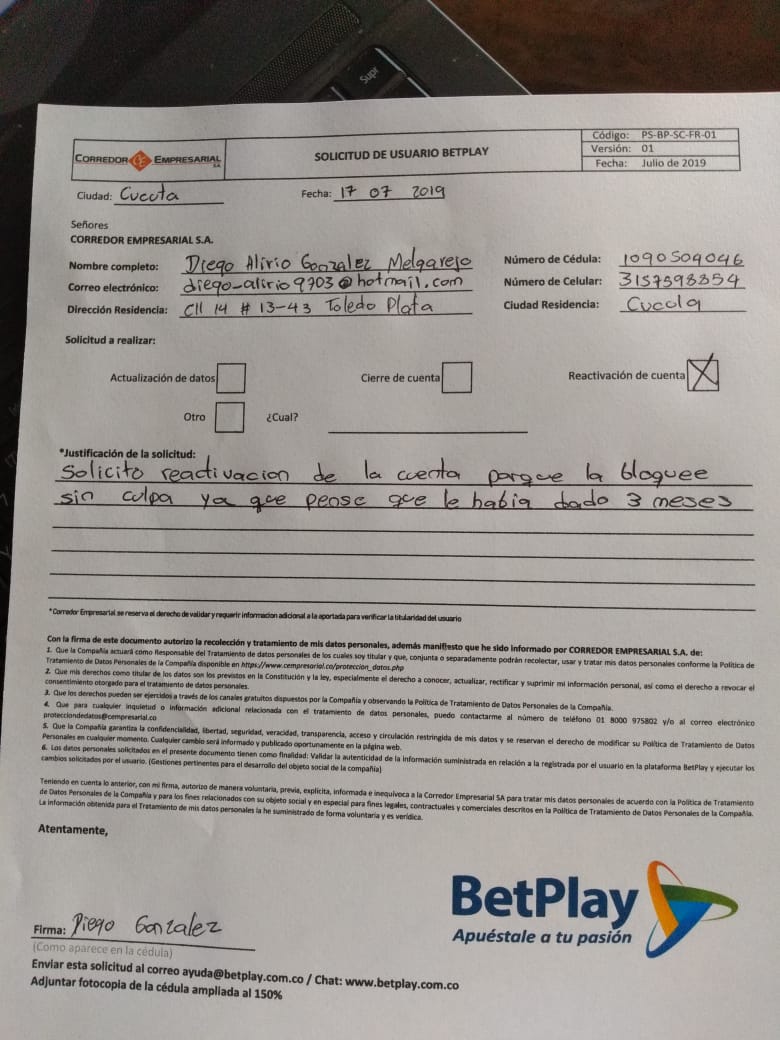 Supr
CORREDOR CE EMPRESARIAL S.A.
SOLICITUD DE USUARIO BETPLAY
Código: PS-BP-SC-FR-01
Versión: 01
Fecha: Julio de 2019
Ciudad: Cucuta Fecha: 17 07 2019
Señores
CORREDOR EMPRESARIAL S.A.
Nombre completo: Diego Alirio Gonzalez Melgarejo Número de Cédula: 1090504046
Correo electrónico: diego-alirio9703@hotmail.com Número de Celular: 3157598854
Dirección Residencia: Cll 14 # 13-43 Toledo Plata Ciudad Residencia: Cucuta
Solicitud a realizar:
Actualización de datos Cierre de cuenta Reactivación de cuenta X
Otro ¿Cual?
*Justificación de la solicitud:
Solicito reactivacion de la cuenta porque la bloquee
sin culpa ya que pense que le habia dado 3 meses
* Corredor Empresarial se reserva el derecho de validar y requerir informacion adicional a la aportada para verificar la titularidad del usuario
Con la firma de este documento autorizo la recolección y tratamiento de mis datos personales, además manifiesto que he sido informado por CORREDOR EMPRESARIAL S.A. de:
1. Que la Compañía actuará como Responsable del Tratamiento de datos personales de los cuales soy titular y que, conjunta o separadamente podrán recolectar, usar y tratar mis datos personales conforme la Política de
Tratamiento de Datos Personales de la Compañía disponible en https://www.cempresarial.co/proteccion_datos.php
2. Que mis derechos como titular de los datos son los previstos en la Constitución y la ley, especialmente el derecho a conocer, actualizar, rectificar y suprimir mi información personal, así como el derecho a revocar el
consentimiento otorgado para el tratamiento de datos personales.
3. Que los derechos pueden ser ejercidos a través de los canales gratuitos dispuestos por la Compañía y observando la Política de Tratamiento de Datos Personales de la Compañía.
4. Que para cualquier inquietud o información adicional relacionada con el tratamiento de datos personales, puedo contactarme al número de teléfono 01 8000 975802 y/o al correo electrónico
protecciondedatos@cempresarial.co
5. Que la Compañía garantiza la confidencialidad, libertad, seguridad, veracidad, transparencia, acceso y circulación restringida de mis datos y se reservan el derecho de modificar su Política de Tratamiento de Datos
Personales en cualquier momento. Cualquier cambio será informado y publicado oportunamente en la página web.
6. Los datos personales solicitados en el presente documento tienen como finalidad: Validar la autenticidad de la información suministrada en relación a la registrada por el usuario en la plataforma BetPlay y ejecutar los
cambios solicitados por el usuario. (Gestiones pertinentes para el desarrollo del objeto social de la compañía)
Teniendo en cuenta lo anterior, con mi firma, autorizo de manera voluntaria, previa, explícita, informada e inequívoca a la Corredor Empresarial SA para tratar mis datos personales de acuerdo con la Política de Tratamiento
de Datos Personales de la Compañía y para los fines relacionados con su objeto social y en especial para fines legales, contractuales y comerciales descritos en la Política de Tratamiento de Datos Personales de la Compañía.
La información obtenida para el Tratamiento de mis datos personales la he suministrado de forma voluntaria y es verídica.
Atentamente,
BetPlay
Apuéstale a tu pasión
Firma: Diego Gonzalez
(Como aparece en la cédula)
Enviar esta solicitud al correo ayuda@betplay.com.co / Chat: www.betplay.com.co
Adjuntar fotocopia de la cédula ampliada al 150%